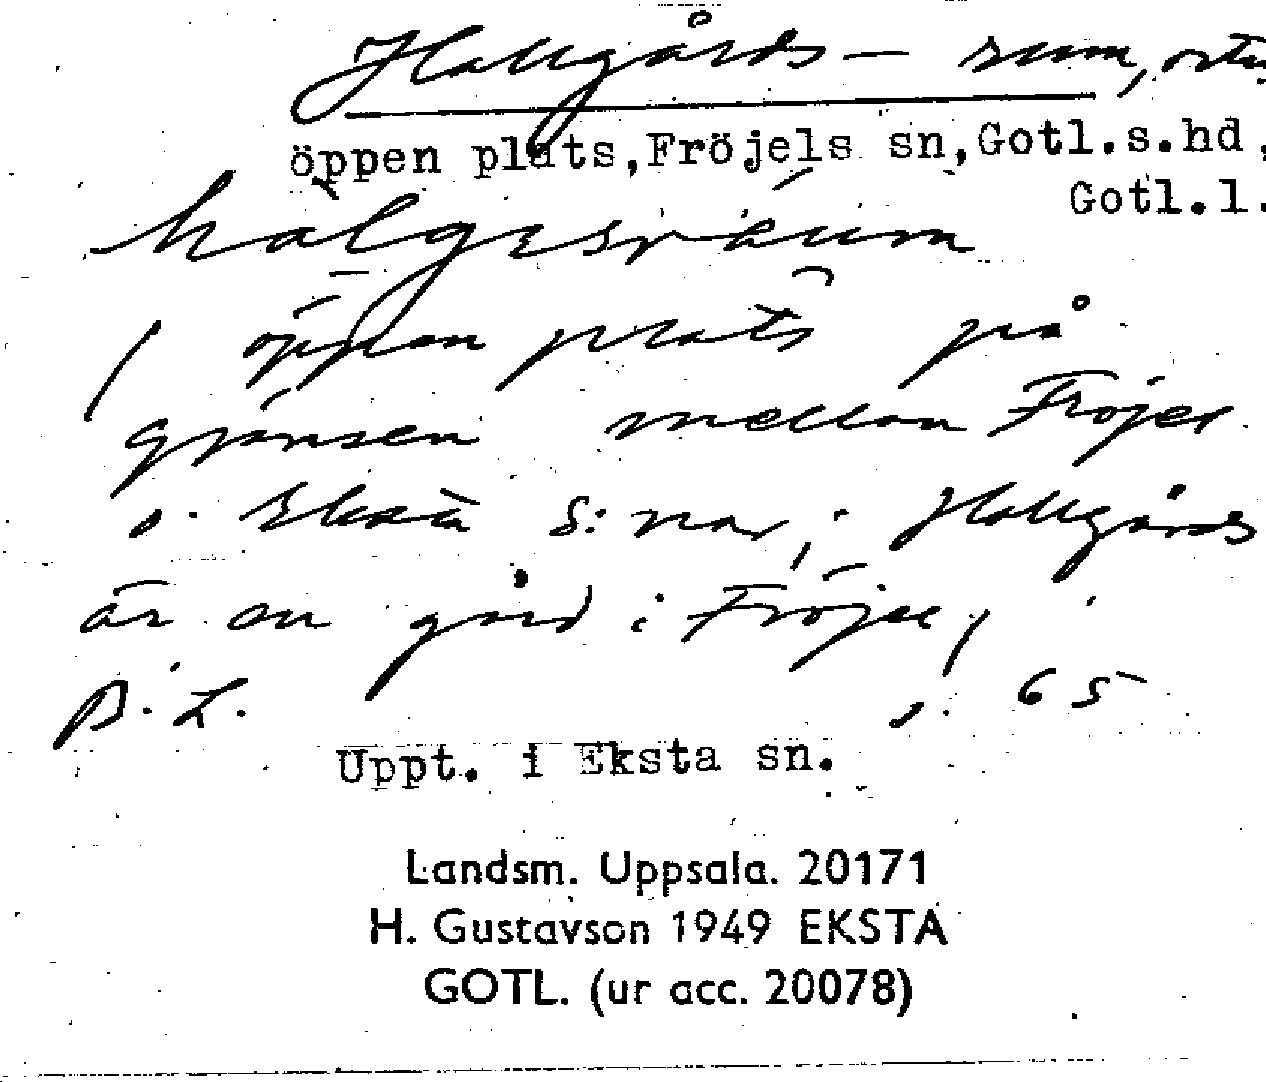 Hallgårds- rum, ortn.
öppen plats,Fröjels sn,Gotl.s.hd,
Gotl.l.
halgesräum
/ öppen plats på
gränsen mellan Fröjel
o. Eksta s:nar; Hallgårds
är en gård i Fröjel/
B.L. s. 65
Uppt. i Eksta sn.
Landsm. Uppsala. 20171
H. Gustavson 1949 EKSTA
GOTL. (ur acc. 20078)